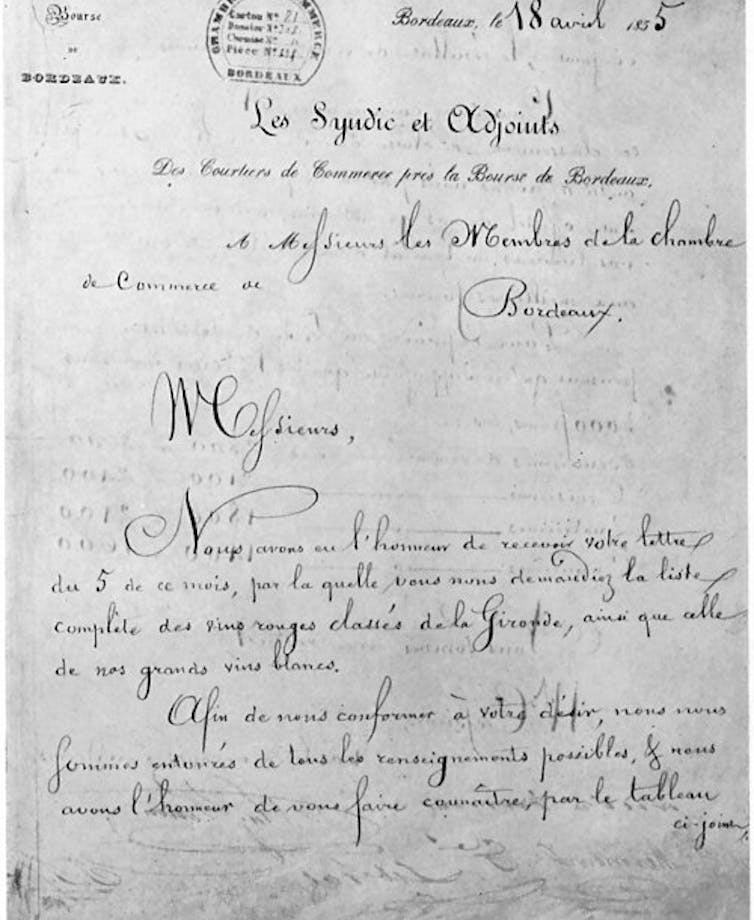 Bourse
DE
BORDEAUX.
CHAMBRE
COMMERCE
Carton Nº 21
Dossier Nº
Chemise Nº
Pièce Nº
BORDEAUX
Bordeaux, le 18 avril 1855
Les Syndic et Adjoints
Des Courtiers de Commerce près la Bourse de Bordeaux,
A Messieurs les Membres de la chambre
de Commerce de
Bordeaux.
Messieurs,
Nous avons eu l'honneur de recevoir votre lettre
du 5 de ce mois, par la quelle vous nous demandiez la liste
complète des vins rouges classés de la Gironde, ainsi que celle
de nos grands vins blancs.
Afin de nous conformer à votre désir, nous nous
sommes entourés de tous les renseignements possibles, & nous
avons l'honneur de vous faire connaître, par le tableau
ci-joint,